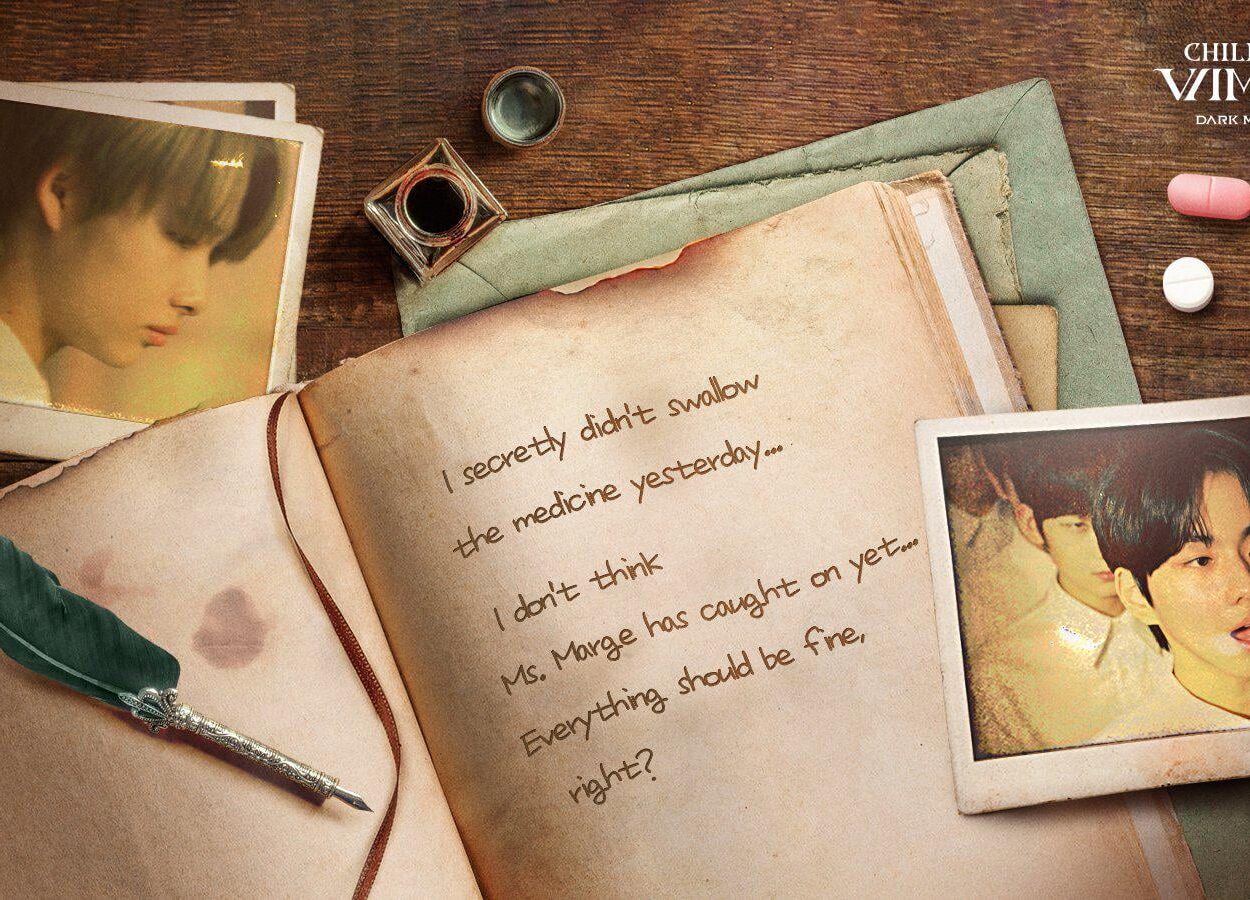 I secretly didn't swallow
the medicine yesterday...
I don't think
Ms. Marge has caught on yet...
Everything should be fine,
right?
DARK